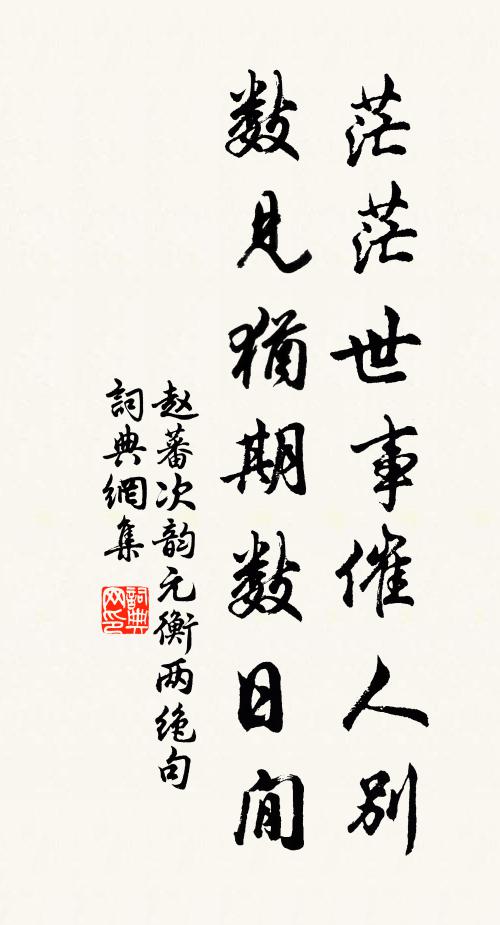 茫茫世事催人别
数见犹期数日间
赵蕃次韵元衡两绝句
詞典網集
詞典网印